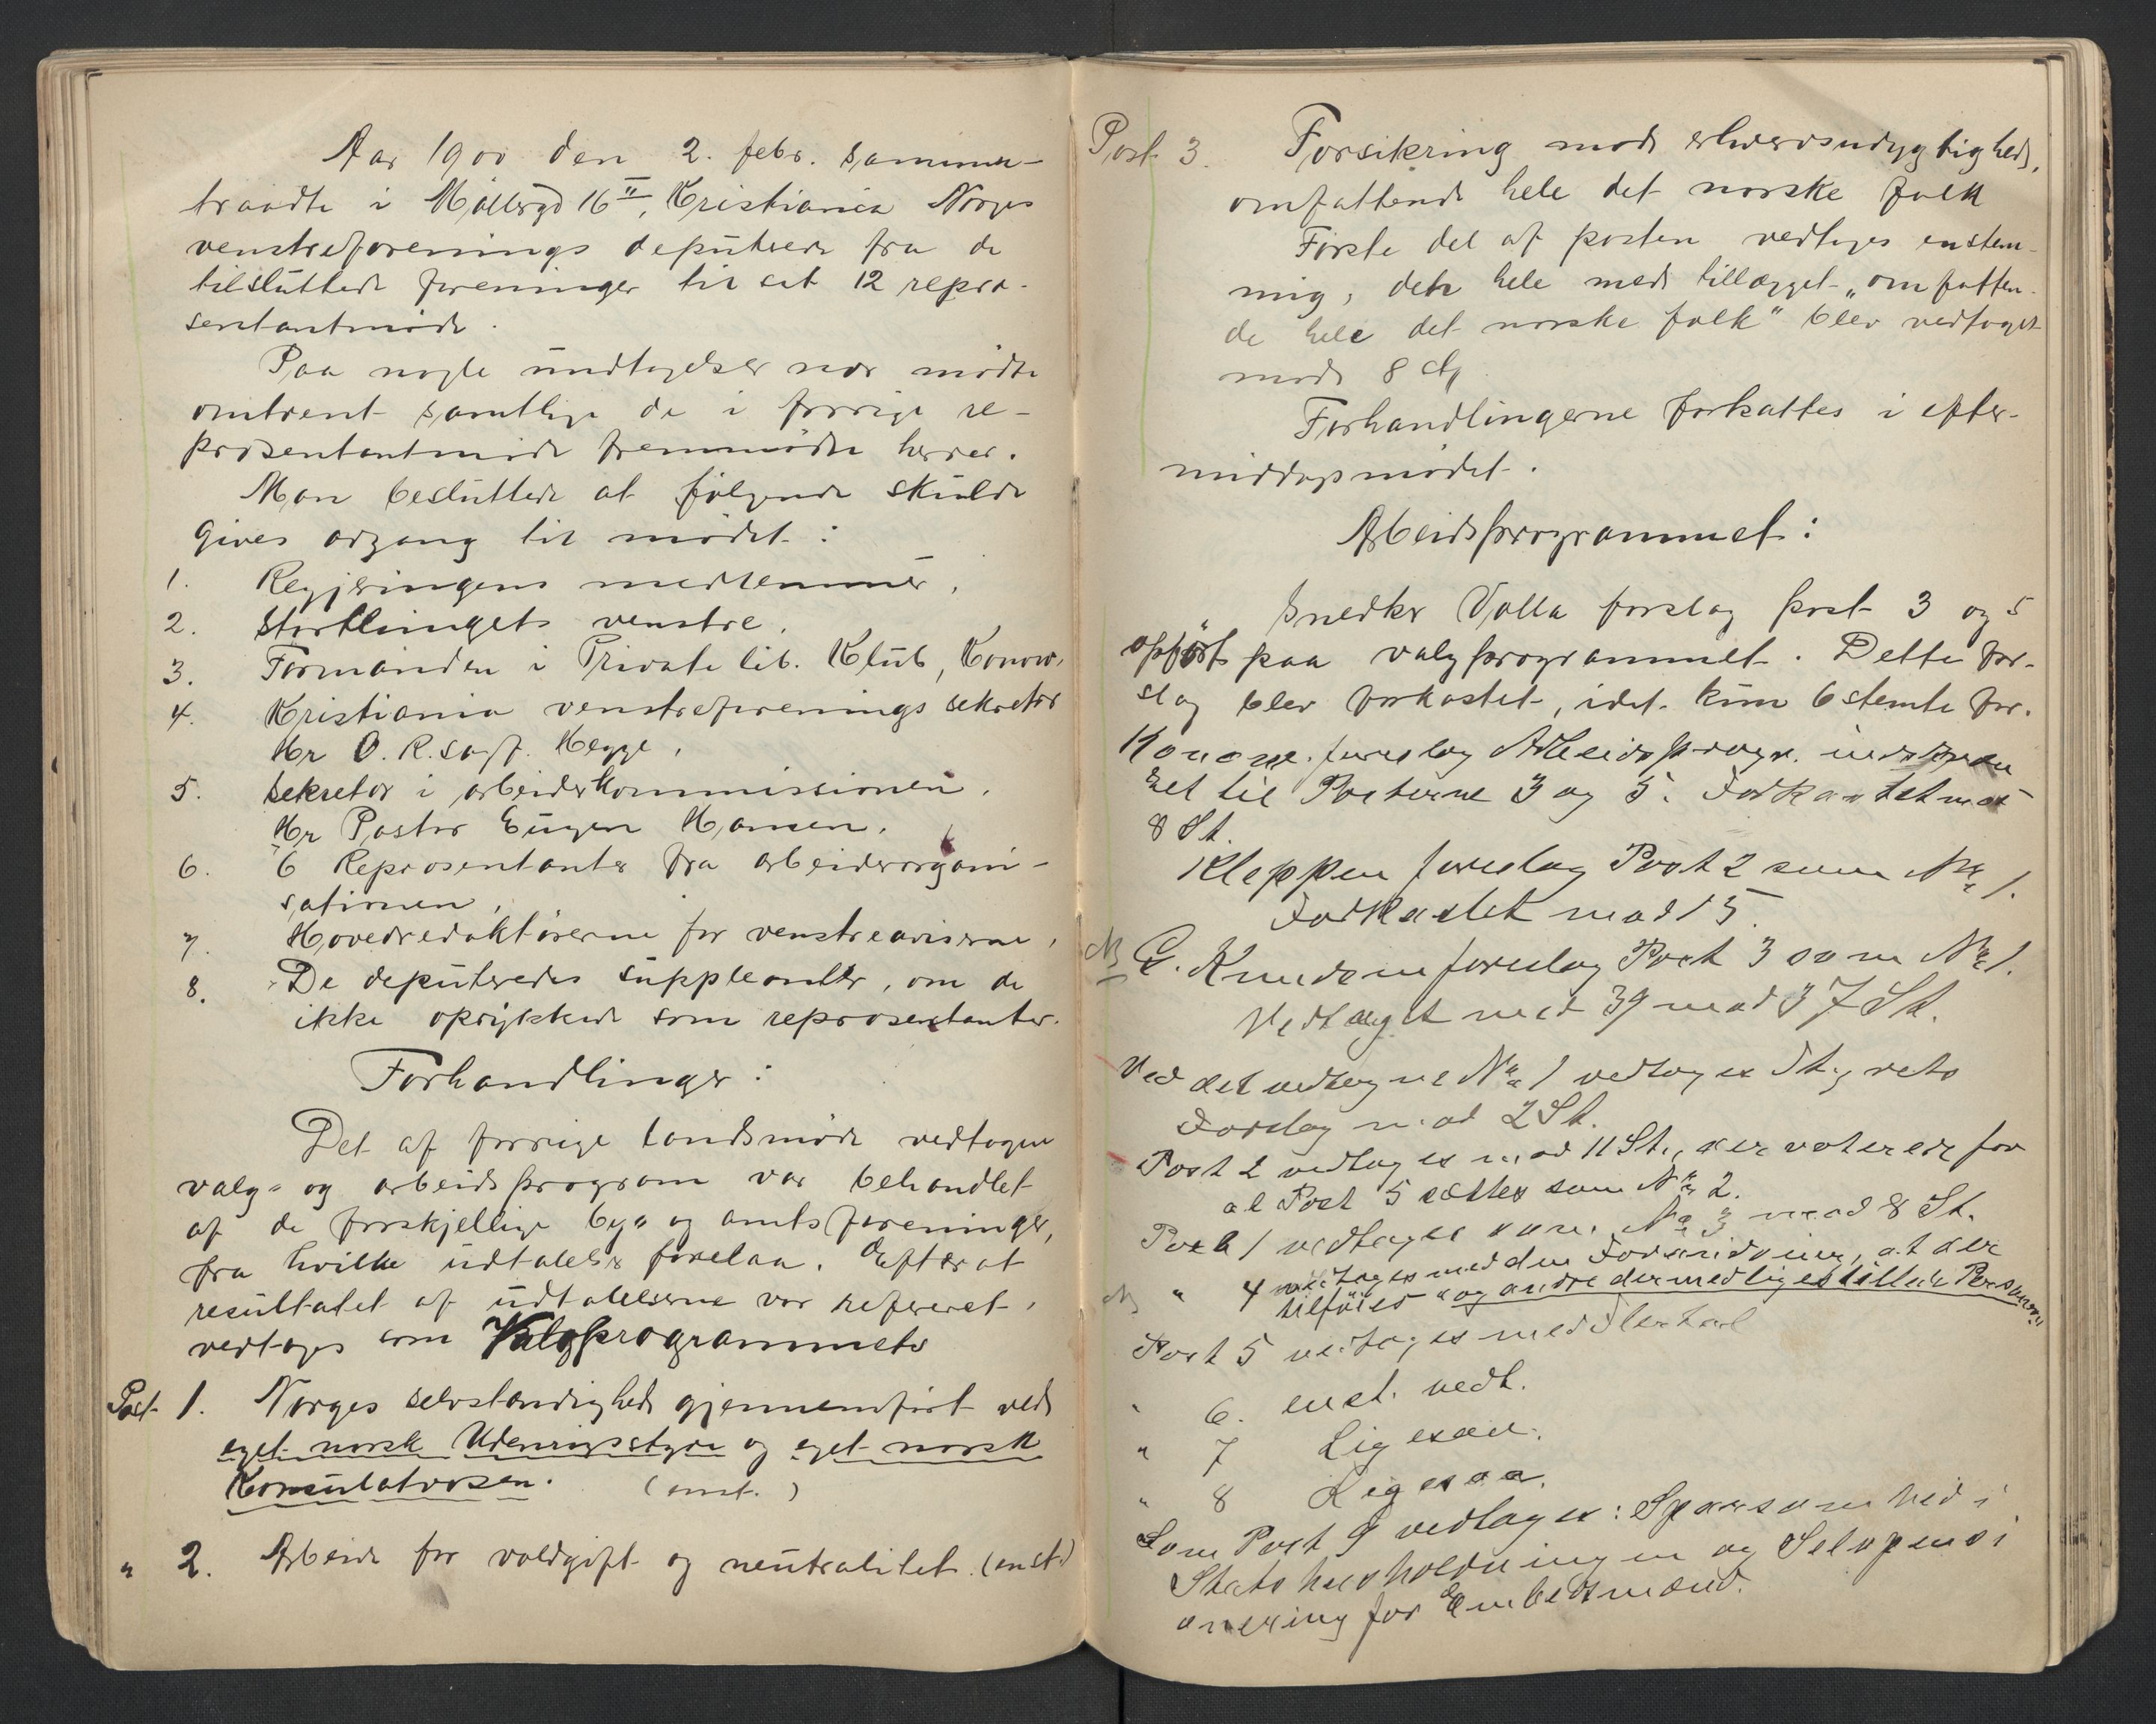 Aar 1900 den 2. febr. samman-
traadte i Møllergd 16 II, Kristiania Norges
venstreforenings deputerede fra de
tilsluttede foreninger til sit 12 repræ-
sentantmøde.
Paa nogle undtagelser nær mødte
omtrent samtlige de i forrige re-
præsentantmøde fremmødte herrer.
Man besluttede at følgende skulde
gives adgang til mødet:
1. Regjeringens medlemmer.
2. Storthingets venstre.
3. Formanden i Private lib. Klub, Konow.
4. Kristiania venstreforenings sekretær
Hr O. R. sagf. Hegge.
5. Sekretær i arbeiderkommissionen.
Hr Pastor Eugen Hansen.
6. 6 Repræsentanter fra arbeiderorgani-
sationen.
7. Hovedredaktørerne for venstreaviserne.
8. De deputeredes suppleanter, om de
ikke oprykkede som repræsentanter.
Forhandlinger:
Det af forrige landsmøde vedtagne
valg- og arbeidsprogram var behandlet
af de forskjellige by- og amtsforeninger,
fra hvilke udtalelser forelaa. Efterat
resultatet af udtalelserne var refereret,
vedtoges som Valgprogrammets
Post 1. Norges selvstændighed gjennemført ved
eget norsk Udenrigsstyre og eget norsk
Konsulatvæsen. (enst.)
" 2. Arbeide for voldgift og neutralitet. (enst.)
Post 3. Forsikring mod erhvervsudygtighed,
omfattende hele det norske folk
Første del af posten vedtoges enstem-
mig, det hele med tillægget "omfatten-
de hele det norske folk" blev vedtaget
mod 8 st.
Forhandlingerne fortsattes i efter-
middagsmødet.
Arbeidsprogrammet:
Snedker Volla forslog post 3 og 5
opført paa valgprogrammet. Dette for-
slag blev forkastet, idet kun 6 stemte for.
Konow foreslog Arbeidsprogr. indskræn
ket til Posterne 3 og 5. Forkastet mod
8 St.
Kleppen foreslog Post 2 som No 1.
Forkastet mod 15.
G. Knudsen foreslog Post 3 som No 1.
Vedtaget med 39 mod 37 St.
Ved det vedtagne No 1 vedtoges Styrets
Forslag mod 2 St.
Post 2 vedtoges mod 11 St., der voterede for
at Post 5 sættes som No 2.
Post 1 vedtoges som No 3 mod 8 St.
" 4 vedtoges med den Forandring, at der
tilføies "og andre dermed ligestillede Personer"
Post 5 vedtoges med Flertal
" 6. enst. vedt.
" 7 Ligesaa.
" 8 Ligesaa.
Som Post 9 vedtoges: Sparsomhed i
Statshusholdningen og Selvpensi
onering for Embedsmænd.